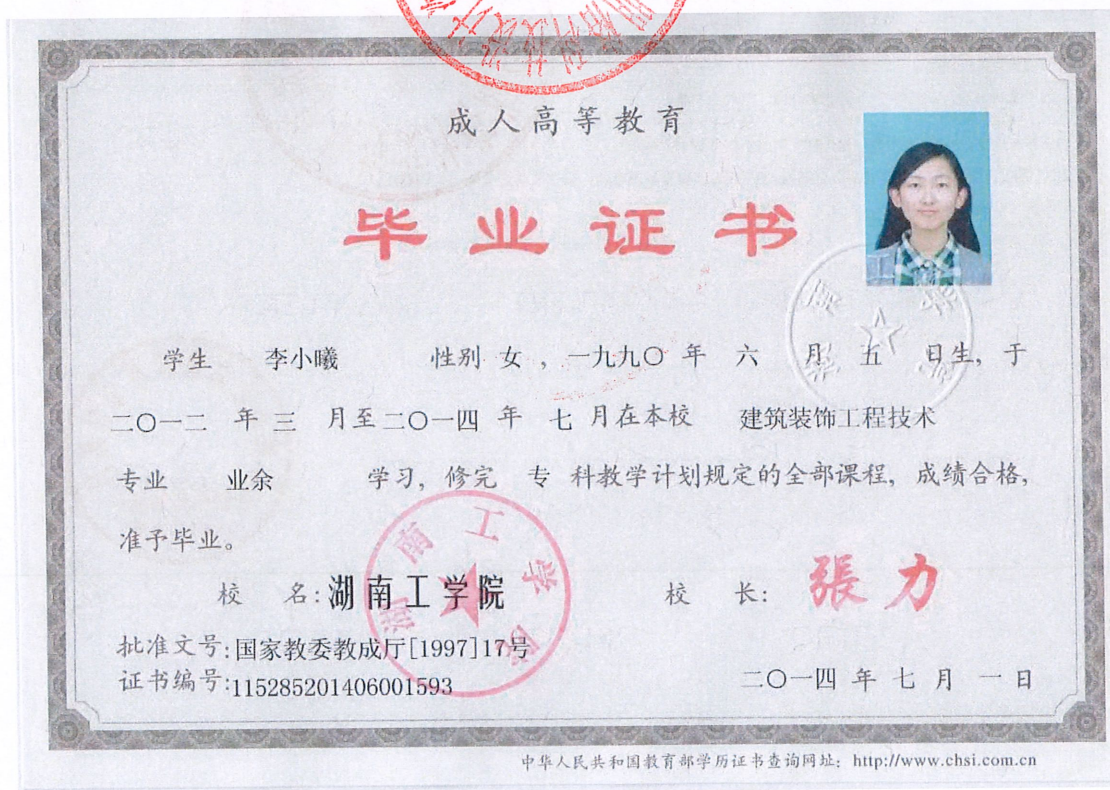 成人高等教育
毕业证书
学生 李小曦 性别 女 ，一九九〇 年 六 月 五 日生，于
二〇一二 年 三 月至二〇一四 年 七 月在本校 建筑装饰工程技术
专业 业余 学习，修完 专 科教学计划规定的全部课程，成绩合格，
准予毕业。
校 名：湖南工学院 校 长：張力
湖南工学院
批准文号：国家教委教成厅[1997]17号
证书编号：115285201406001593
二〇一四 年 七 月 一 日
中华人民共和国教育部学历证书查询网址：http://www.chsi.com.cn